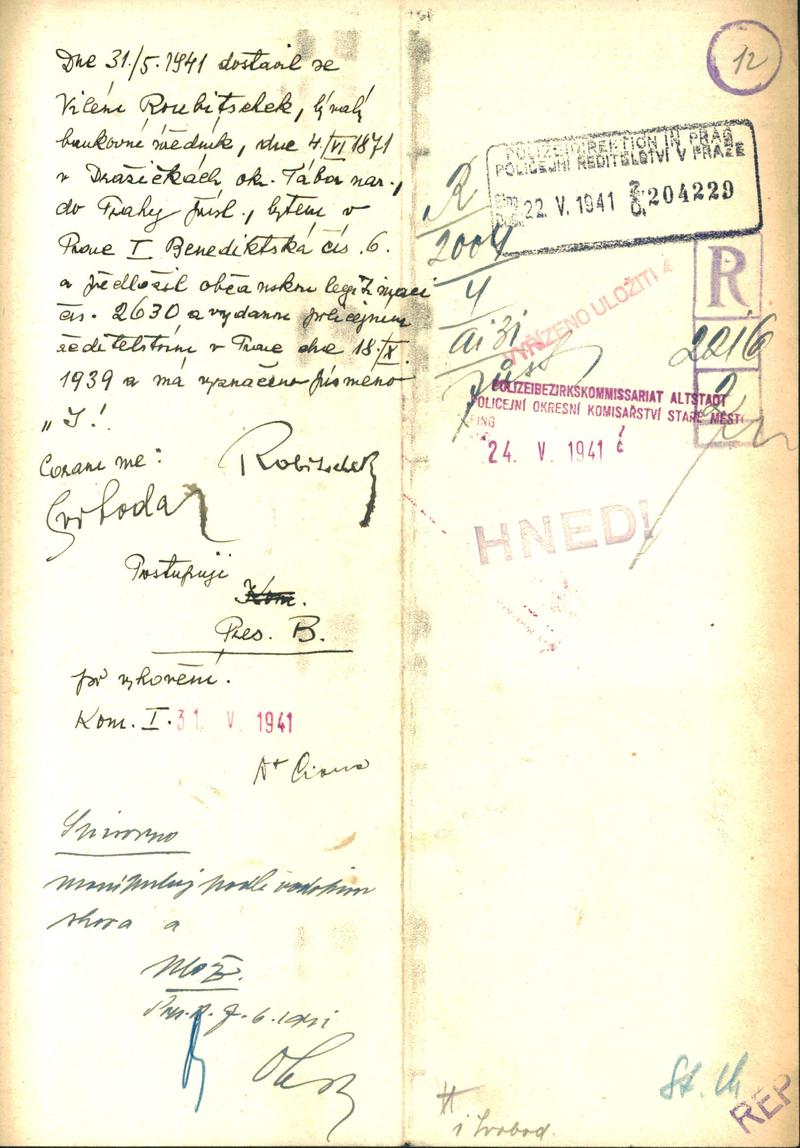 Dne 31./5. 1941 dostavil se
Vilém Roubitschek, bývalý
bankovní úředník, dne 4./VI 1871
v Dražičkách, ok. Tábor nar.,
do Prahy přísl., bytem v
Praze I Benediktská čís. 6.
a předložil občanskou legitimaci
čís. 2630 a vydanou policejním
ředitelstvím v Praze dne 18./X.
1939 a má vyznačeno písmeno
"J".
Robitschek
Svoboda
Postupuji
Kom.
Pres. B.
po vyhovění.
Kom. I. 31. V. 1941
Srovnáno
a
Ulož.
12
POLIZEIDIREKTION IN PRAG
POLICEJNÍ ŘEDITELSTVÍ V PRAZE
22. V. 1941 204229
R
2004
4
ai 31
VYŘÍZENO ULOŽITI 4
R
2216
2
POLIZEIBEZIRKSKOMMISSARIAT ALTSTADT
POLICEJNÍ OKRESNÍ KOMISAŘSTVÍ STARÉ MĚSTO
24. V. 1941
HNED!
St. Ch
REP
i Svobod.